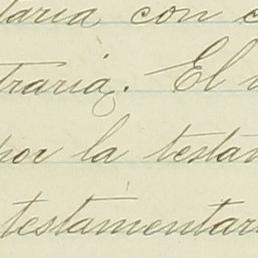 taria con
traria. El
por la testa
testamentar